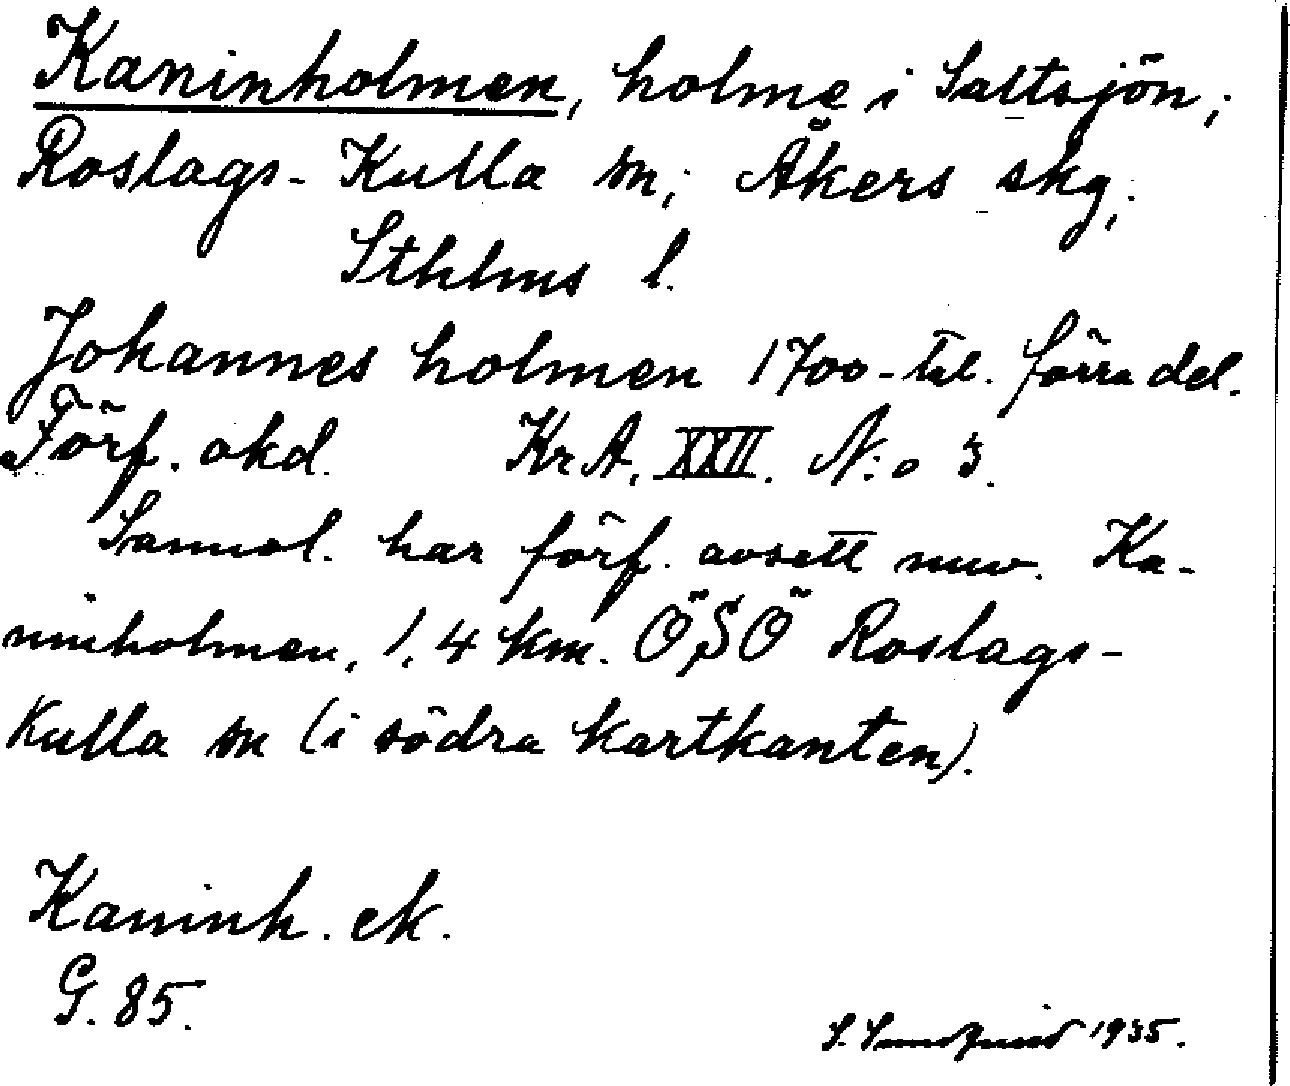 Kaninholmen, holme i Saltsjön;
Roslags-Kulla sn; Åkers skg;
Sthlms l.
Johannes holmen 1700-tal. förra del.
Förf. okd. KrA. XXII. N:o 3.
Sannol. har förf. avsett nuv. Ka-
ninholmen, 1,4 km. ÖSÖ Roslags-
Kulla sn (i södra kartkanten).
Kaninh. ek.
G. 85.
S. 1935.